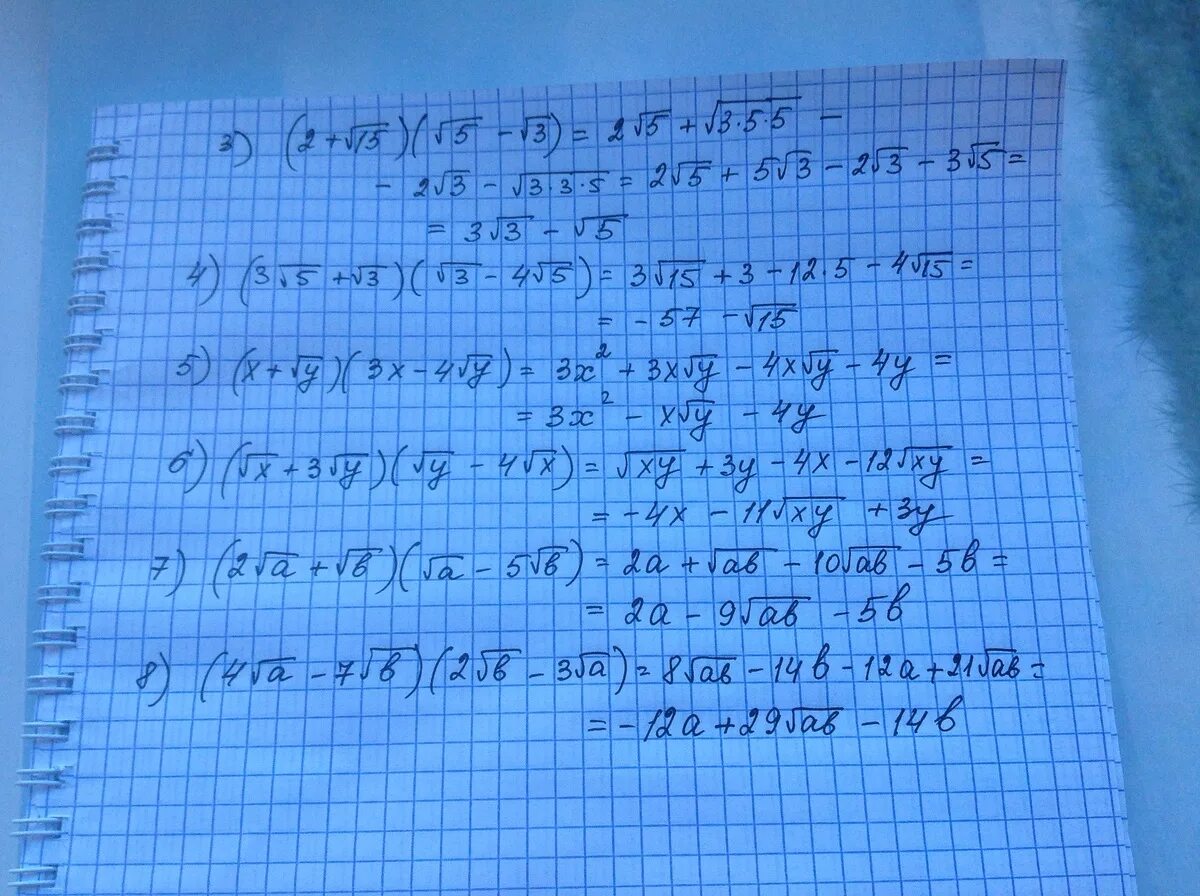 3) (2+√15)(√5 - √3) = 2√5 + √3·5·5 -
- 2√3 - √3·3·5 = 2√5 + 5√3 - 2√3 - 3√5 =
= 3√3 - √5
4) (3√5 + √3)(√3 - 4√5) = 3√15 + 3 - 12·5 - 4√15 =
= - 57 - √15
5) (x + √y)(3x - 4√y) = 3x² + 3x√y - 4x√y - 4y =
= 3x² - x√y - 4y
6) (√x + 3√y)(√y - 4√x) = √xy + 3y - 4x - 12√xy =
= -4x - 11√xy + 3y
7) (2√a + √b)(√a - 5√b) = 2a + √ab - 10√ab - 5b =
= 2a - 9√ab - 5b
8) (4√a - 7√b)(2√b - 3√a) = 8√ab - 14b - 12a + 21√ab =
= -12a + 29√ab - 14b